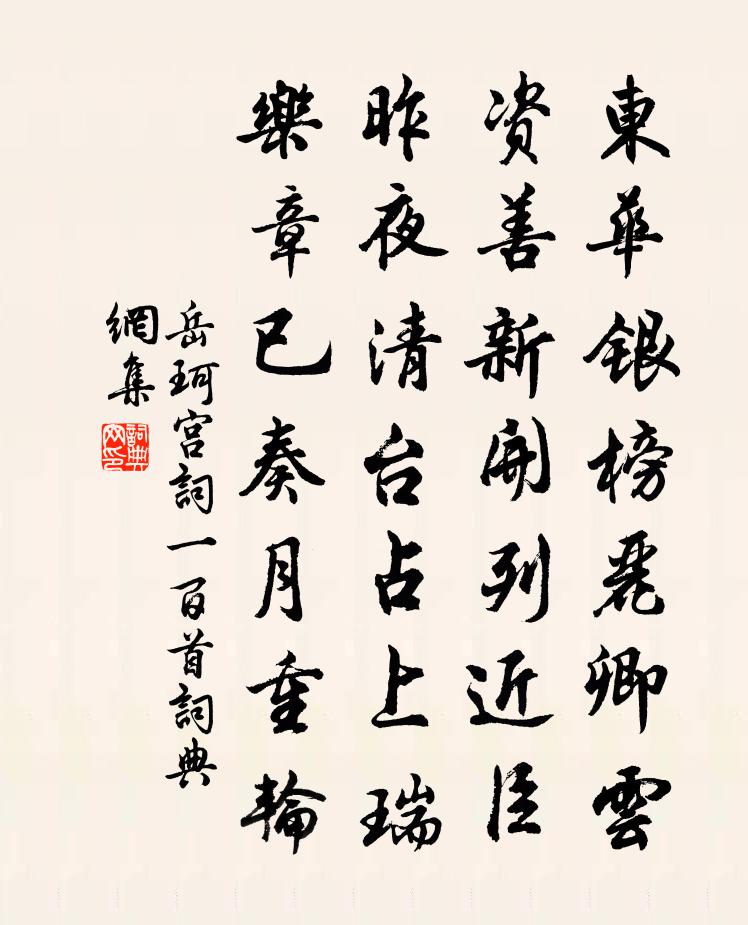 東華銀榜麗卿雲
資善新開列近臣
昨夜清台占上瑞
樂章已奏月重輪
岳珂宫詞一百首詞典
網集
詞典
网印